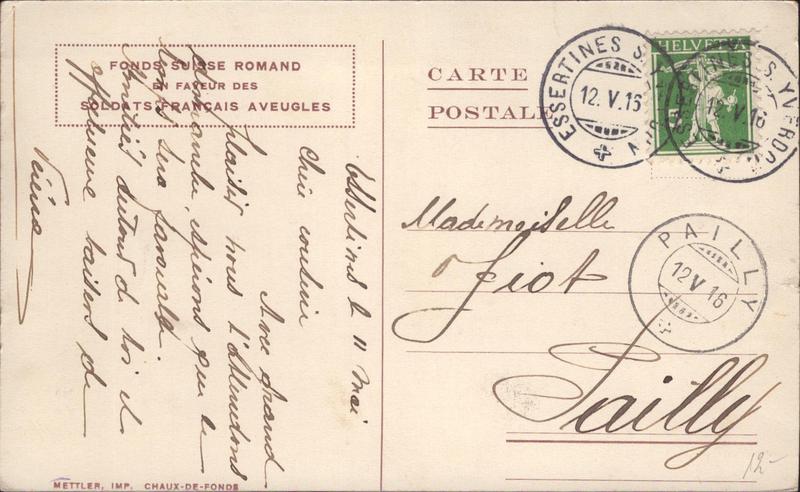 FONDS SUISSE ROMAND
EN FAVEUR DES
SOLDATS FRANÇAIS AVEUGLES
Essertines le 11 mai
Chère cousine
Avec grand
plaisir nous t'attendons
dimanche, espérons que le
temps sera favorable.
Amitiés de toi et
affectueux baisers de
METTLER, IMP. CHAUX-DE-FONDS
CARTE
POSTALE
HELVETIA
ESSERTINES S. YVERDON
12. V. 16
ESSERTINES S. YVERDON
12. V. 16
PAILLY
12 V 16
Mademoiselle
Jiot
Pailly
12-